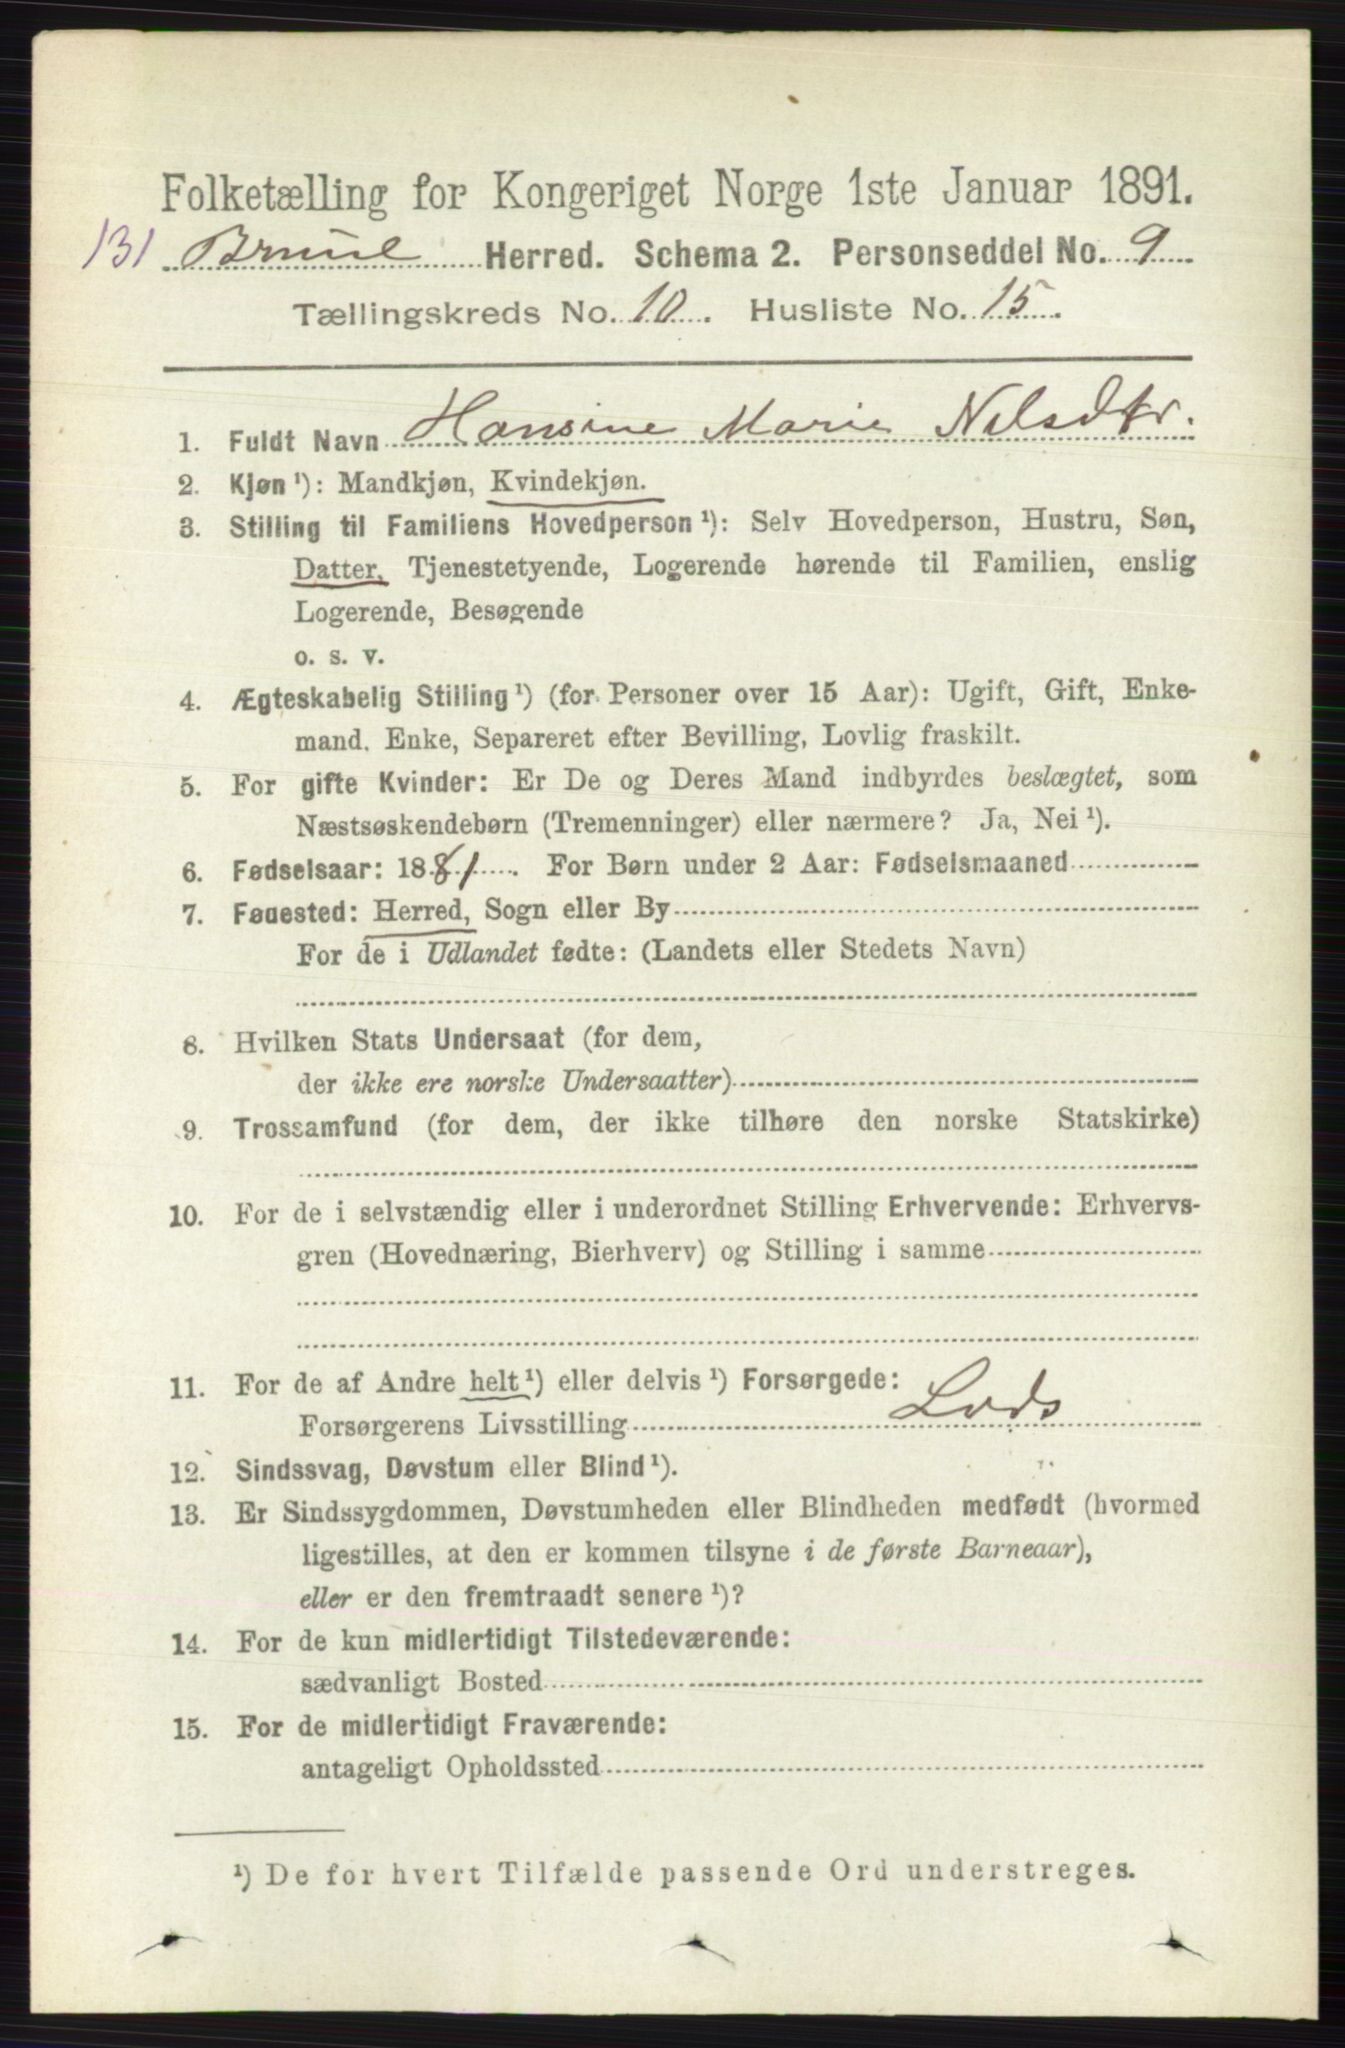 Folketælling for Kongeriget Norge 1ste Januar 1891.
131 Brunl Herred. Schema 2. Personseddel No. 9
Tællingskreds No. 10. Husliste No. 15.
1. Fuldt Navn Hansine Marie Nilsdtr.
2. Kjøn ¹): Mandkjøn, Kvindekjøn.
3. Stilling til Familiens Hovedperson ¹): Selv Hovedperson, Hustru, Søn,
Datter, Tjenestetyende, Logerende hørende til Familien, enslig
Logerende, Besøgende
o. s. v.
4. Ægteskabelig Stilling ¹) (for Personer over 15 Aar): Ugift, Gift, Enke-
mand, Enke, Separeret efter Bevilling, Lovlig fraskilt.
5. For gifte Kvinder: Er De og Deres Mand indbyrdes beslægtet, som
Næstsøskendebørn (Tremenninger) eller nærmere? Ja, Nei ¹).
6. Fødselsaar: 1881. For Børn under 2 Aar: Fødselsmaaned
7. Fødested: Herred, Sogn eller By
For de i Udlandet fødte: (Landets eller Stedets Navn)
8. Hvilken Stats Undersaat (for dem,
der ikke ere norske Undersaatter)
9. Trossamfund (for dem, der ikke tilhøre den norske Statskirke)
10. For de i selvstændig eller i underordnet Stilling Erhvervende: Erhvervs-
gren (Hovednæring, Bierhverv) og Stilling i samme
11. For de af Andre helt ¹) eller delvis ¹) Forsørgede:
Forsørgerens Livsstilling Lods
12. Sindssvag, Døvstum eller Blind ¹).
13. Er Sindssygdommen, Døvstumheden eller Blindheden medfødt (hvormed
ligestilles, at den er kommen tilsyne i de første Barneaar),
eller er den fremtraadt senere ¹)?
14. For de kun midlertidigt Tilstedeværende:
sædvanligt Bosted
15. For de midlertidigt Fraværende:
antageligt Opholdssted
¹) De for hvert Tilfælde passende Ord understreges.